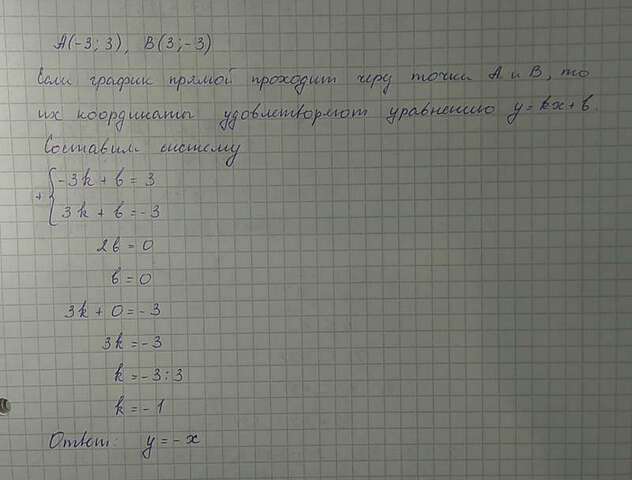 A(-3; 3), B(3; -3)
Если график прямой проходит через точки A и B, то
их координаты удовлетворяют уравнению y = kx + b.
Составим систему
+ { -3k + b = 3
3k + b = -3
2b = 0
b = 0
3k + 0 = -3
3k = -3
k = -3 : 3
k = -1
Ответ: y = -x